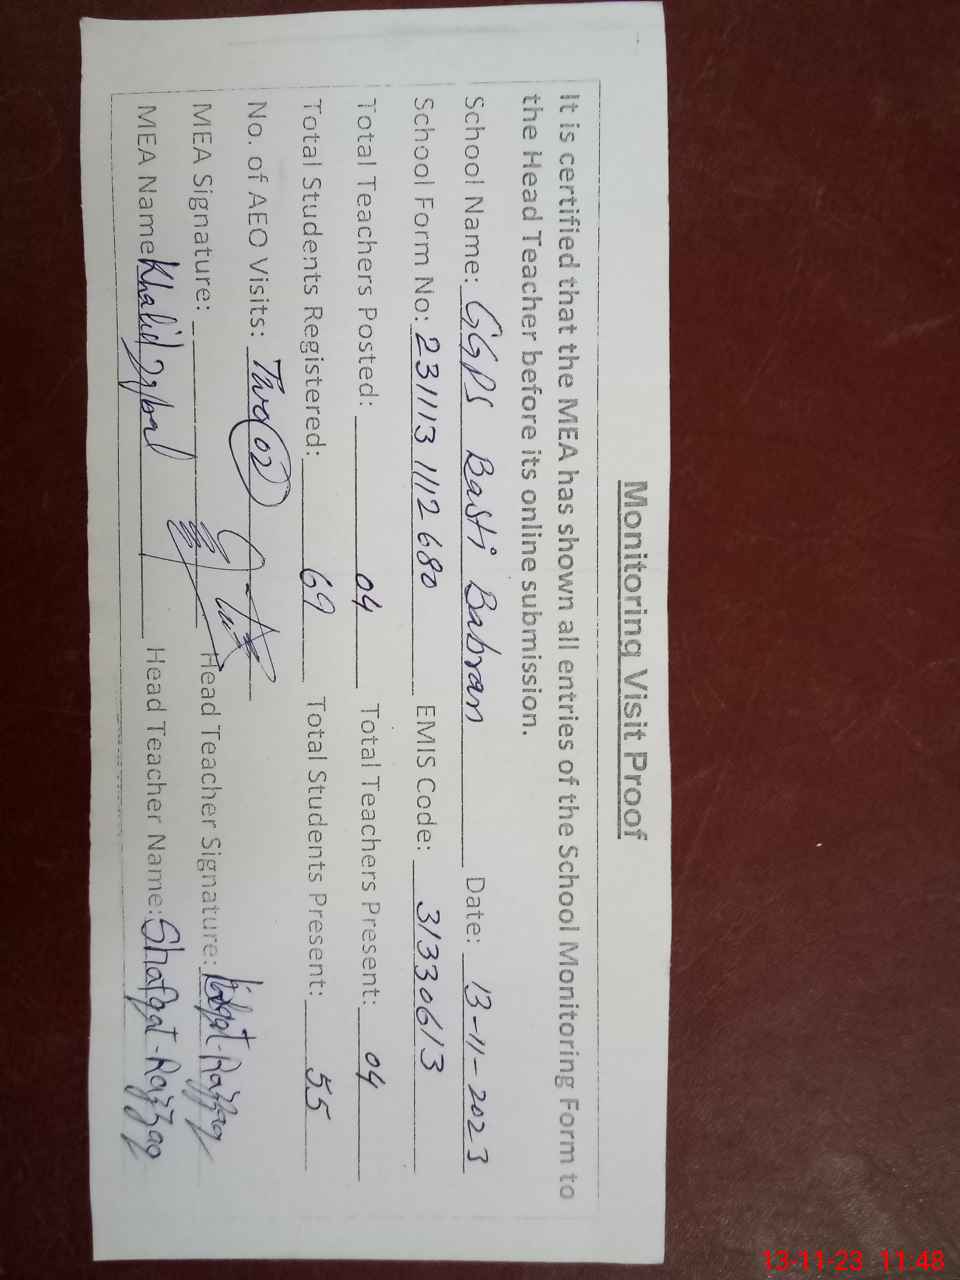 Monitoring Visit Proof
It is certified that the MEA has shown all entries of the School Monitoring Form to
the Head Teacher before its online submission.
School Name: GGPS Basti Babran Date: 13-11-2023
School Form No: 231113 1112680 EMIS Code: 31330613
Total Teachers Posted: 04 Total Teachers Present: 04
Total Students Registered: 69 Total Students Present: 55
No. of AEO Visits: Two (02)
MEA Signature: Head Teacher Signature:
MEA Name Khalid Iqbal Head Teacher Name: Shafqat-Razzaq
13-11-23 11:48